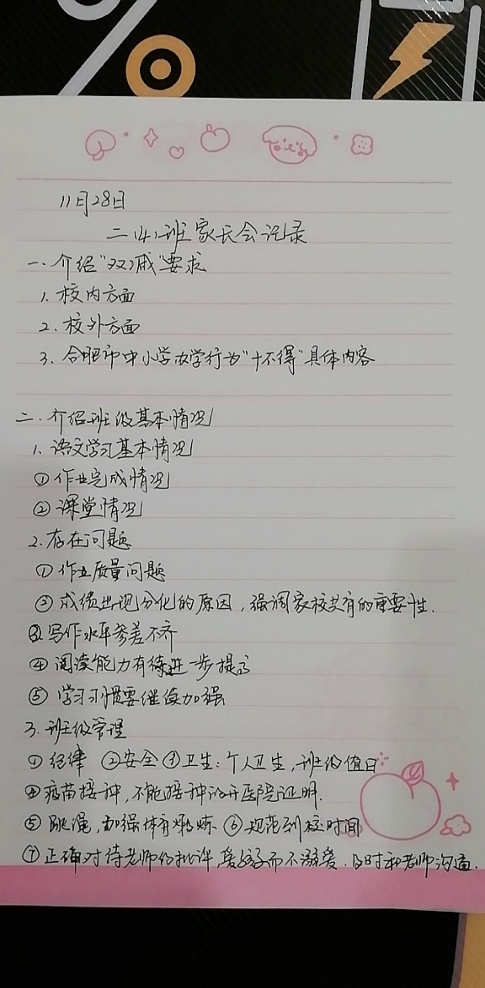 11月28日
二(4)班家长会记录
一.介绍“双减”要求
1.校内方面
2.校外方面
3.合肥市中小学办学行为“十不得”具体内容
二.介绍班级基本情况
1.语文学习基本情况
①作业完成情况
②课堂情况
2.存在问题
①作业质量问题
②成绩出现分化的原因,强调家校共育的重要性.
③写作水平参差不齐
④阅读能力有待进一步提高
⑤学习习惯要继续加强
3.班级管理
①纪律 ②安全 ③卫生:个人卫生,班级值日
④疫苗接种,不能接种的开医院证明.
⑤跳绳,加强体育锻炼 ⑥规范到校时间
⑦正确对待老师的批评,爱孩子而不溺爱.及时和老师沟通.